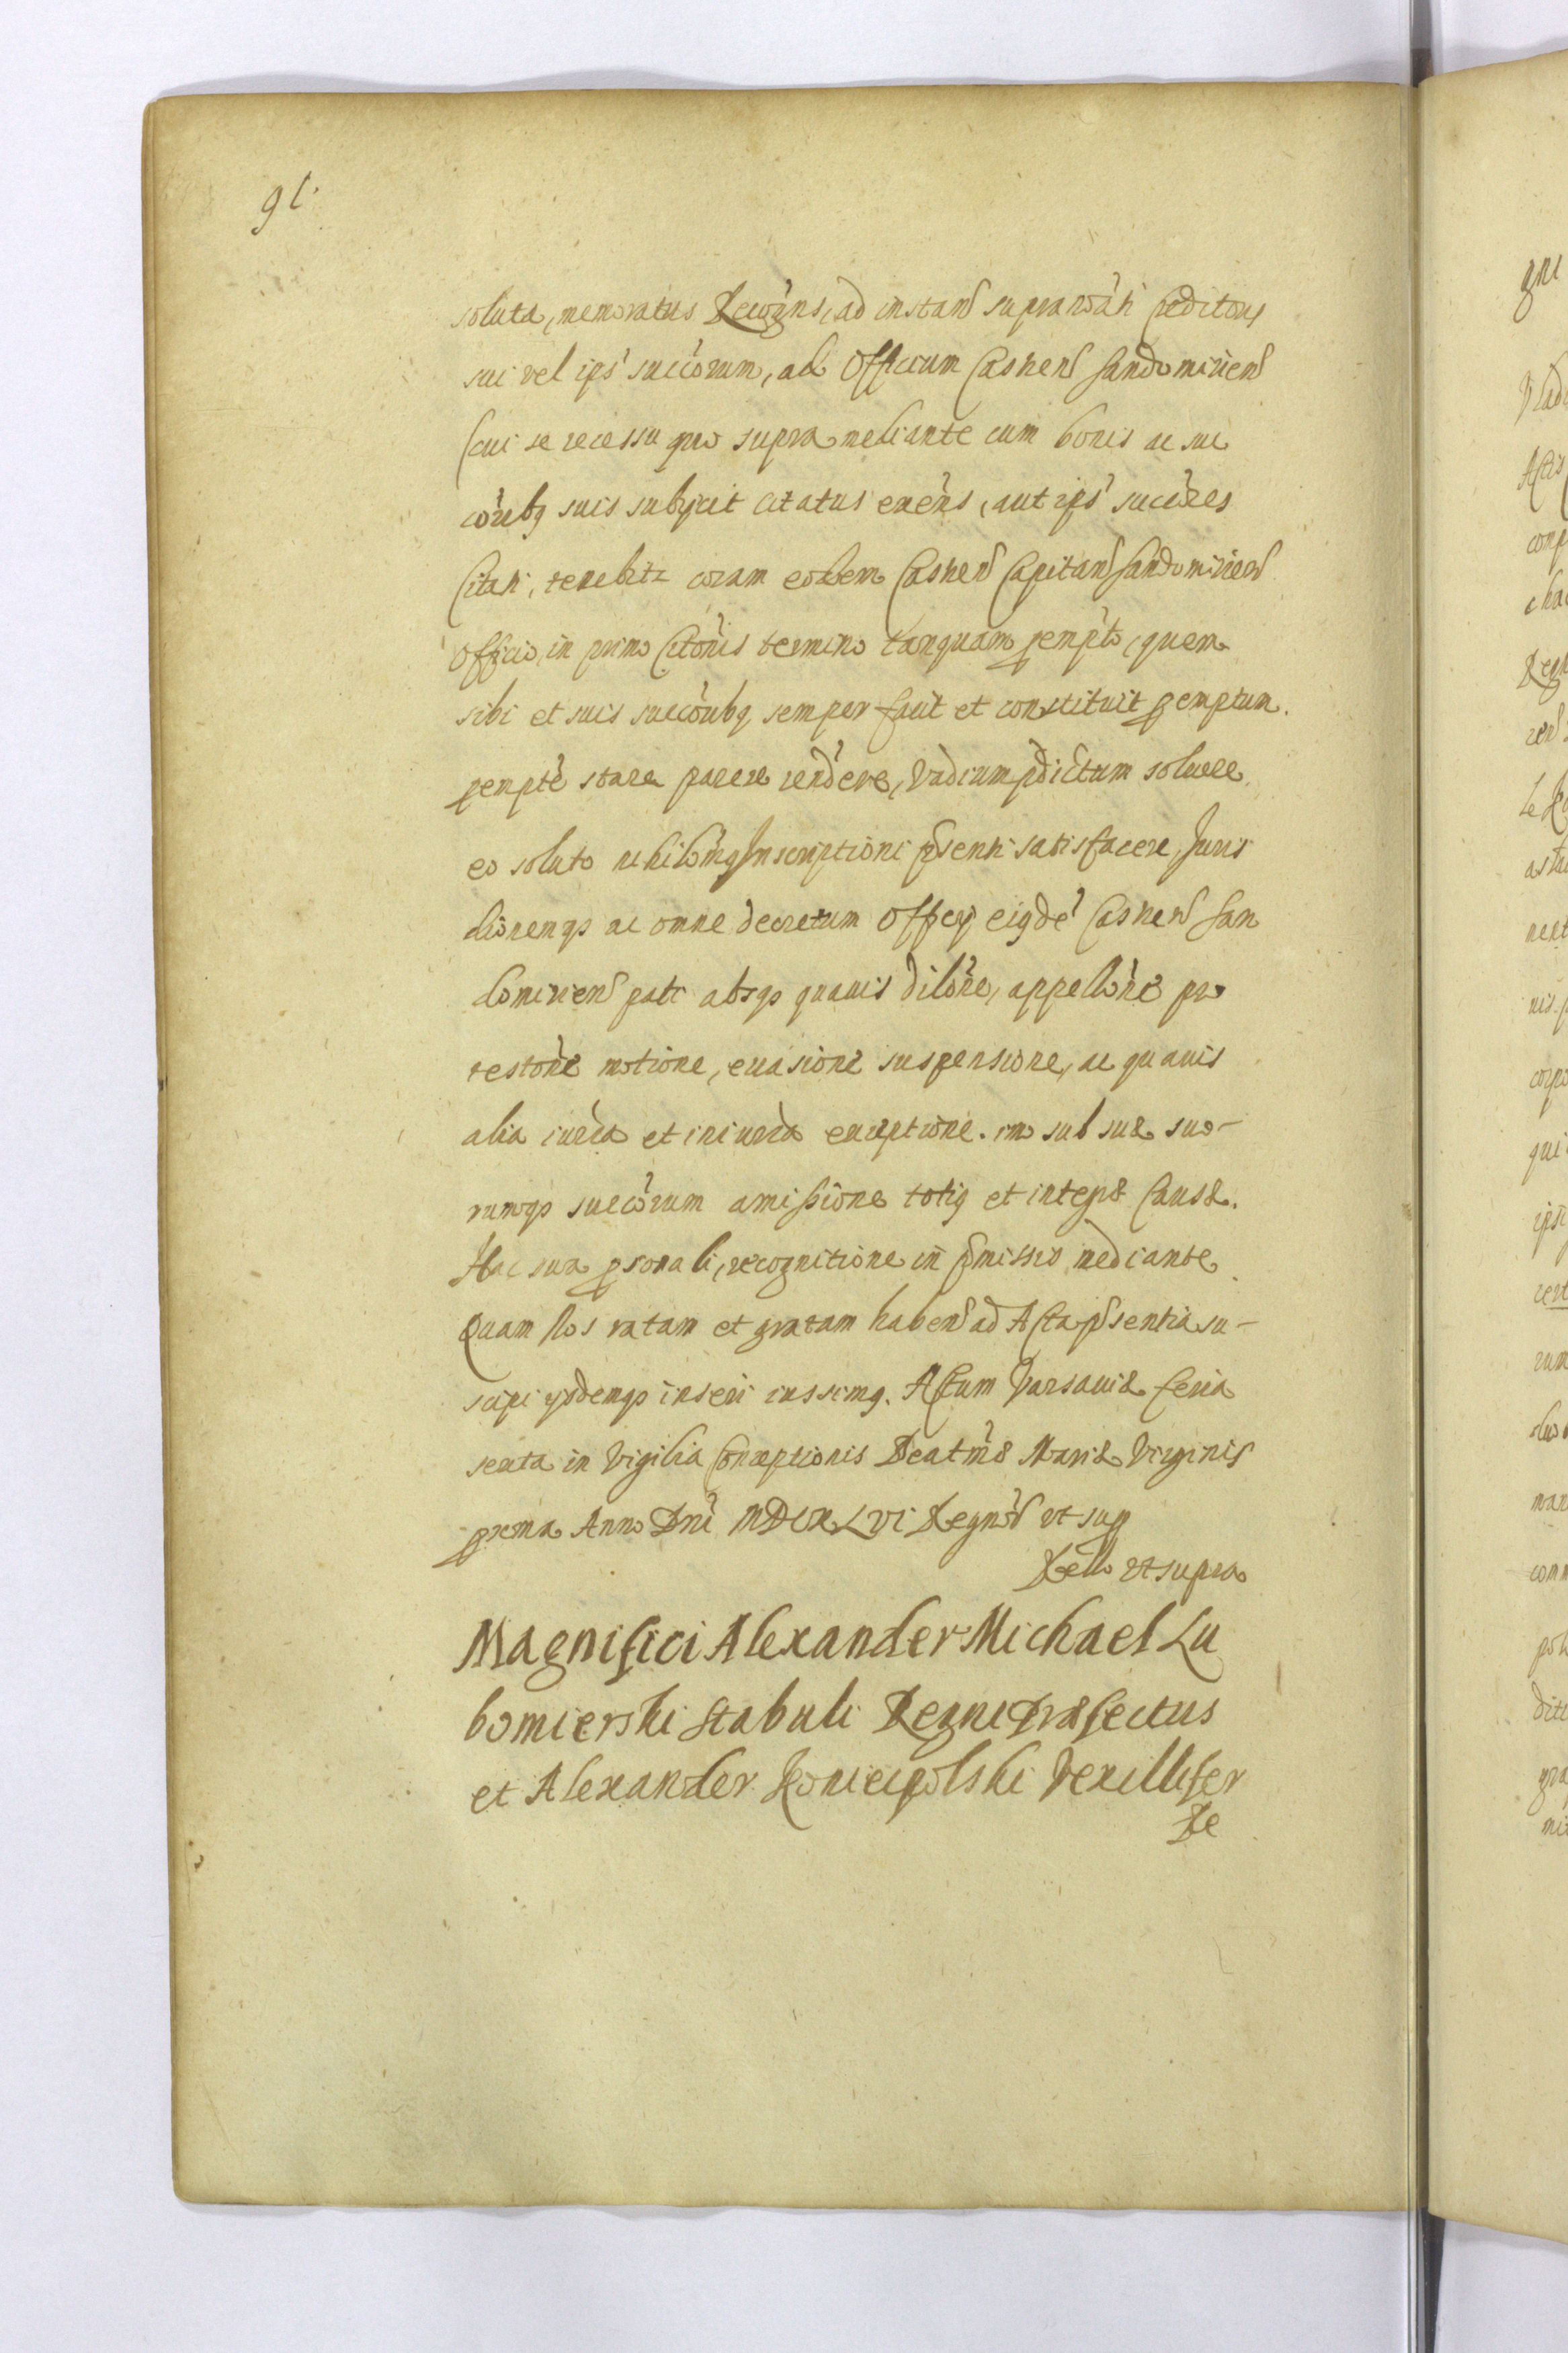 91.
soluta, memoratus Recogns, ad instan supranoāti Creditoris
sui vel ips succorum, ad Officium Castren Sandomirien
(cui se recessu quo supra mediante cum bonis ac suc
corībq suis subijcit citatus existens, aut ips succores
Citati, tenebitr coram eodem Castren Capitan Sandomirien
Officio, in primo Citōnis termino tanquam pempto, quem
sibi et suis succoribq semper facit et constituit pemptum.
pempte stare parere rendere, Vadium pdictum soluere,
eo soluto nihilomq Inscriptioni psenti satisfacere, Juris
dionemqs ac omne decretum Officij eiqde Castren San
domirien pati absqs quauis dilōne, appellōne pro
testōne motione, euasione suspensione, ac quauis
alia iurea et iniurea exceptione. im̄o sub suæ suo-
rumqs succorum amissione totiq et integræ Causæ.
Hac sua psonali, recognitione in pmissis mediante
Quam Nos ratam et gratam haben ad Acta psentia su-
scipi ysdemqs inseri iussimq. Actum Varsaviæ feria
sexta in Vigilia Conceptionis Beatmæ Mariæ Virginis
pxima Anno Dni MDCXLVI Regnor vt sup
Rello vt supra
Magnifici Alexander Michael Lu
bomierski Stabuli Regni Præfectus
et Alexander Koniecpolski Vexillifer
Re